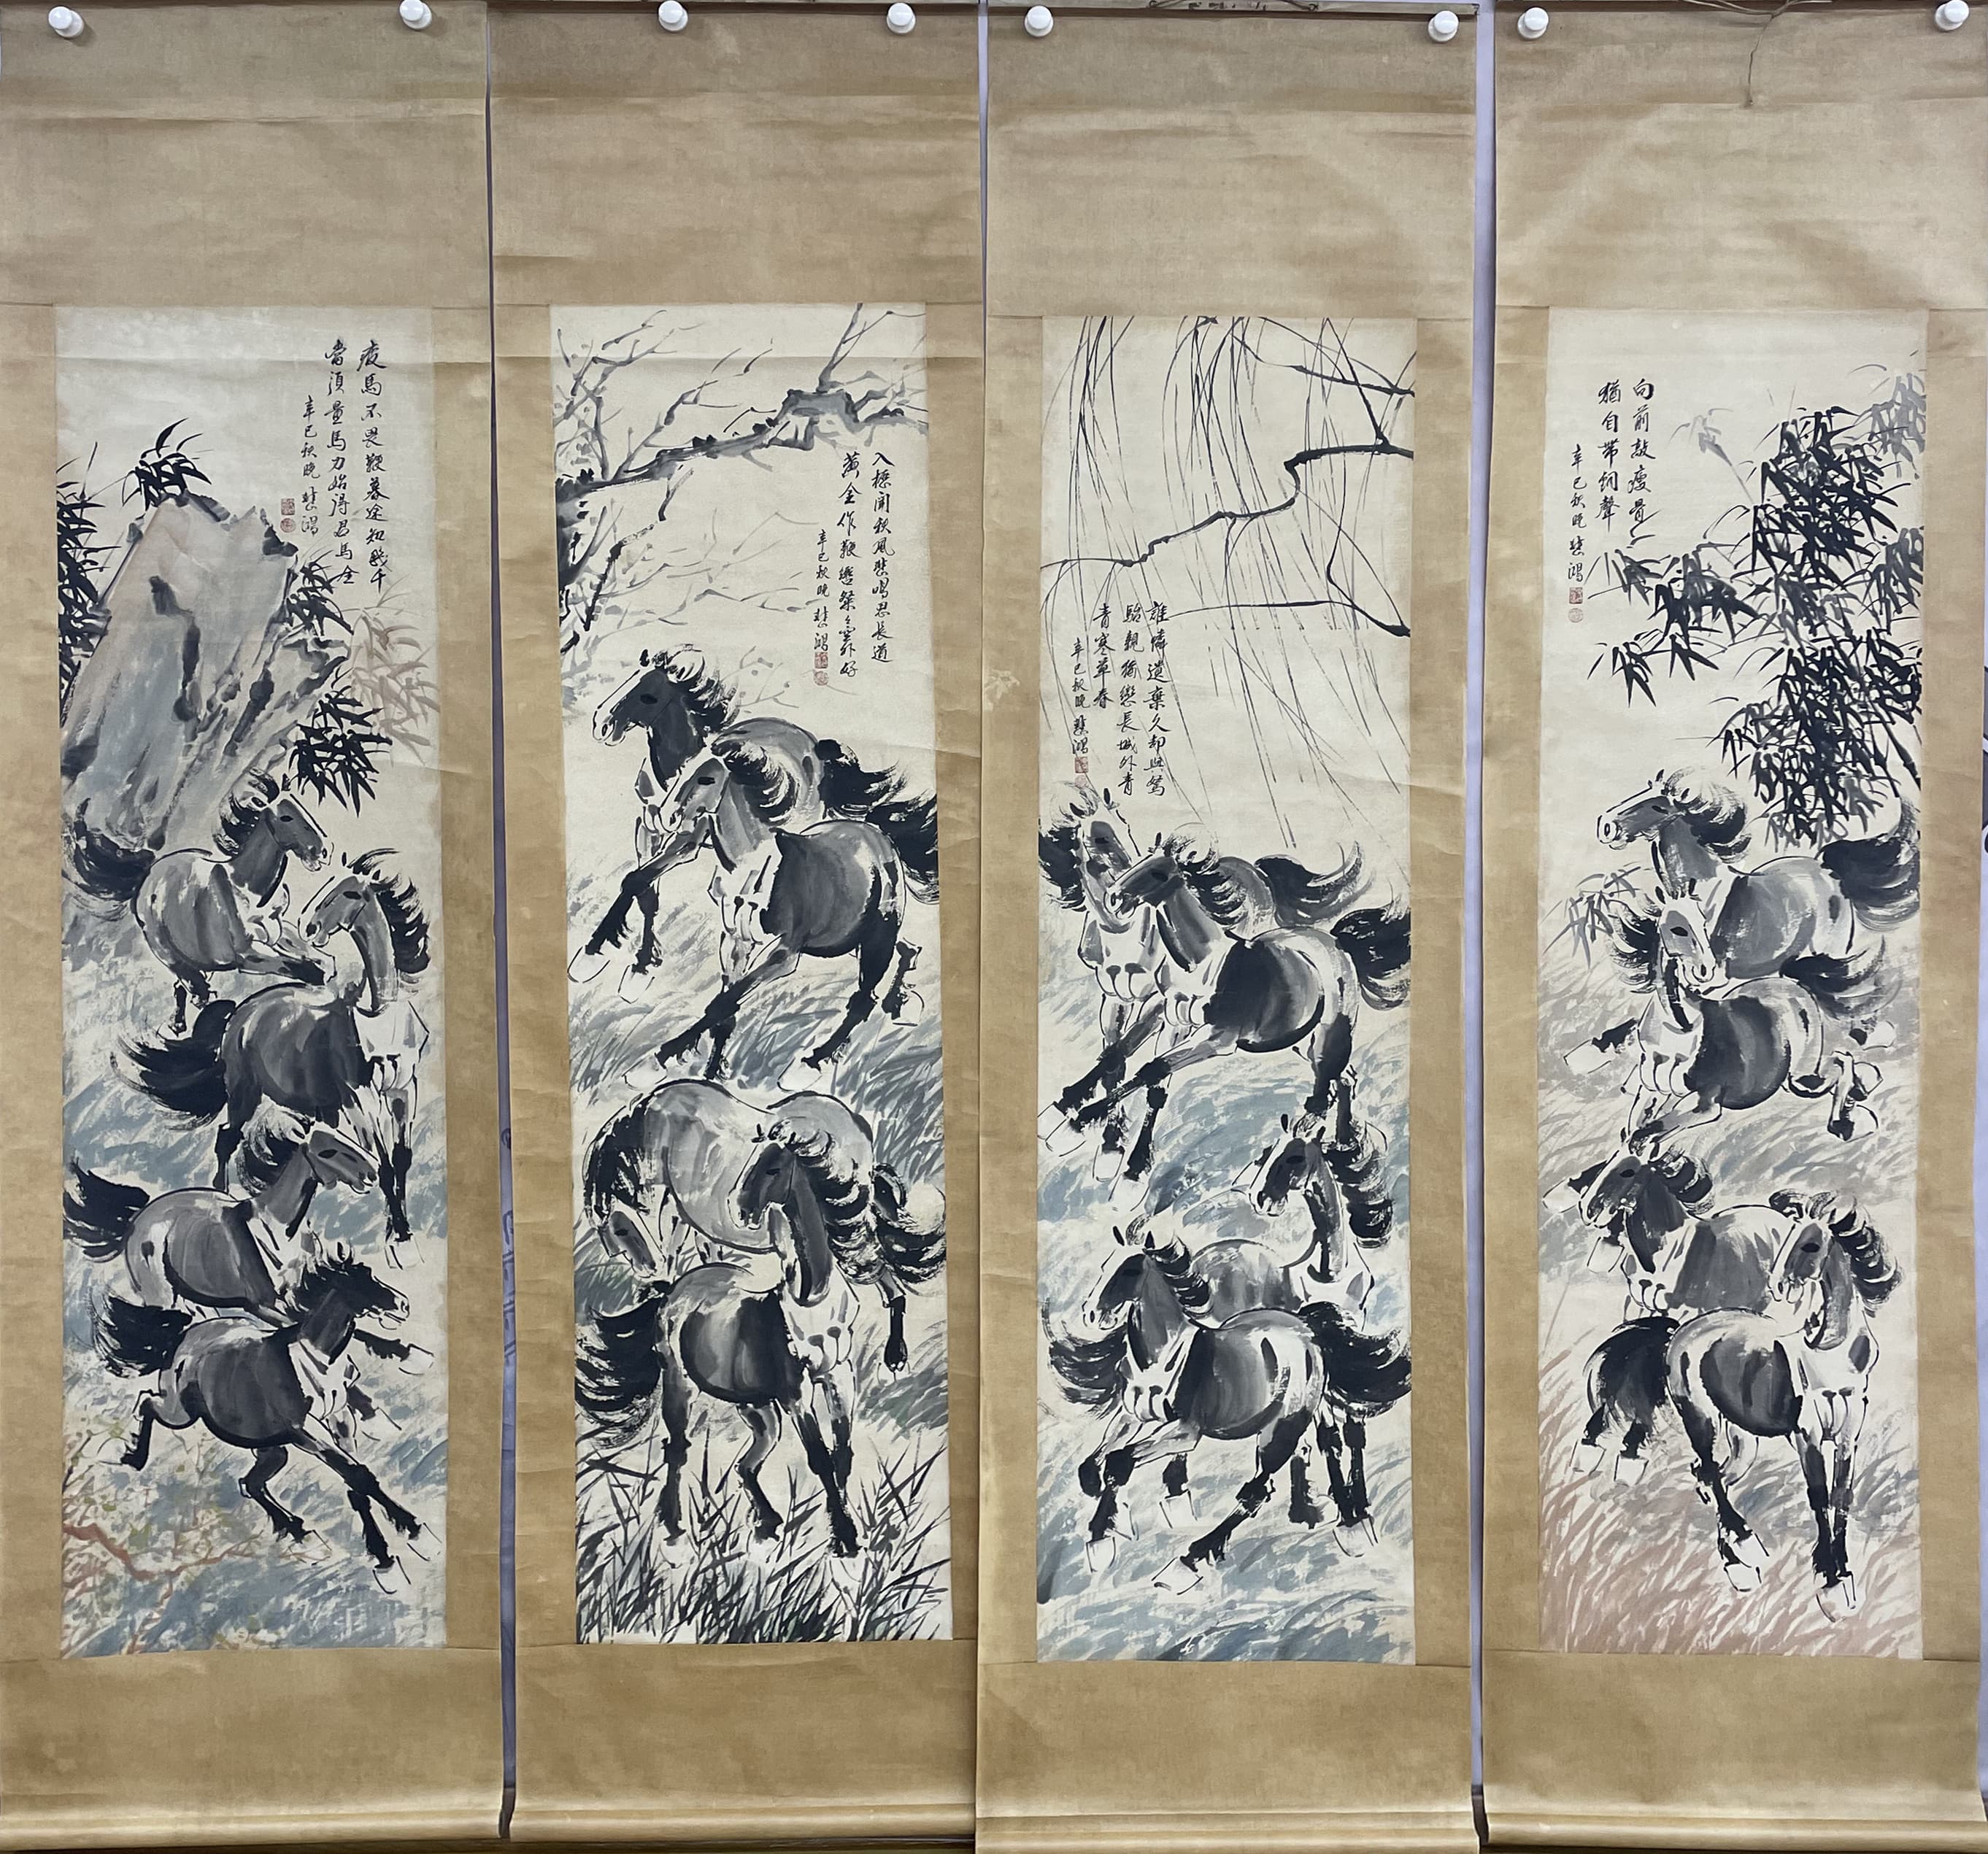 向前敲瘦骨
猶自帶銅聲
辛巳秋晚 悲鴻
誰憐遺棄久却與駑
駘親猶戀長城外青
青寒草春
辛巳秋晚 悲鴻
入櫪聞秋風悲鳴思長道
黃金作鞭轡粲々空外好
辛巳秋晚 悲鴻
疲馬不畏鞭暮途知幾千
當須量馬力始得君馬全
辛巳秋晚 悲鴻